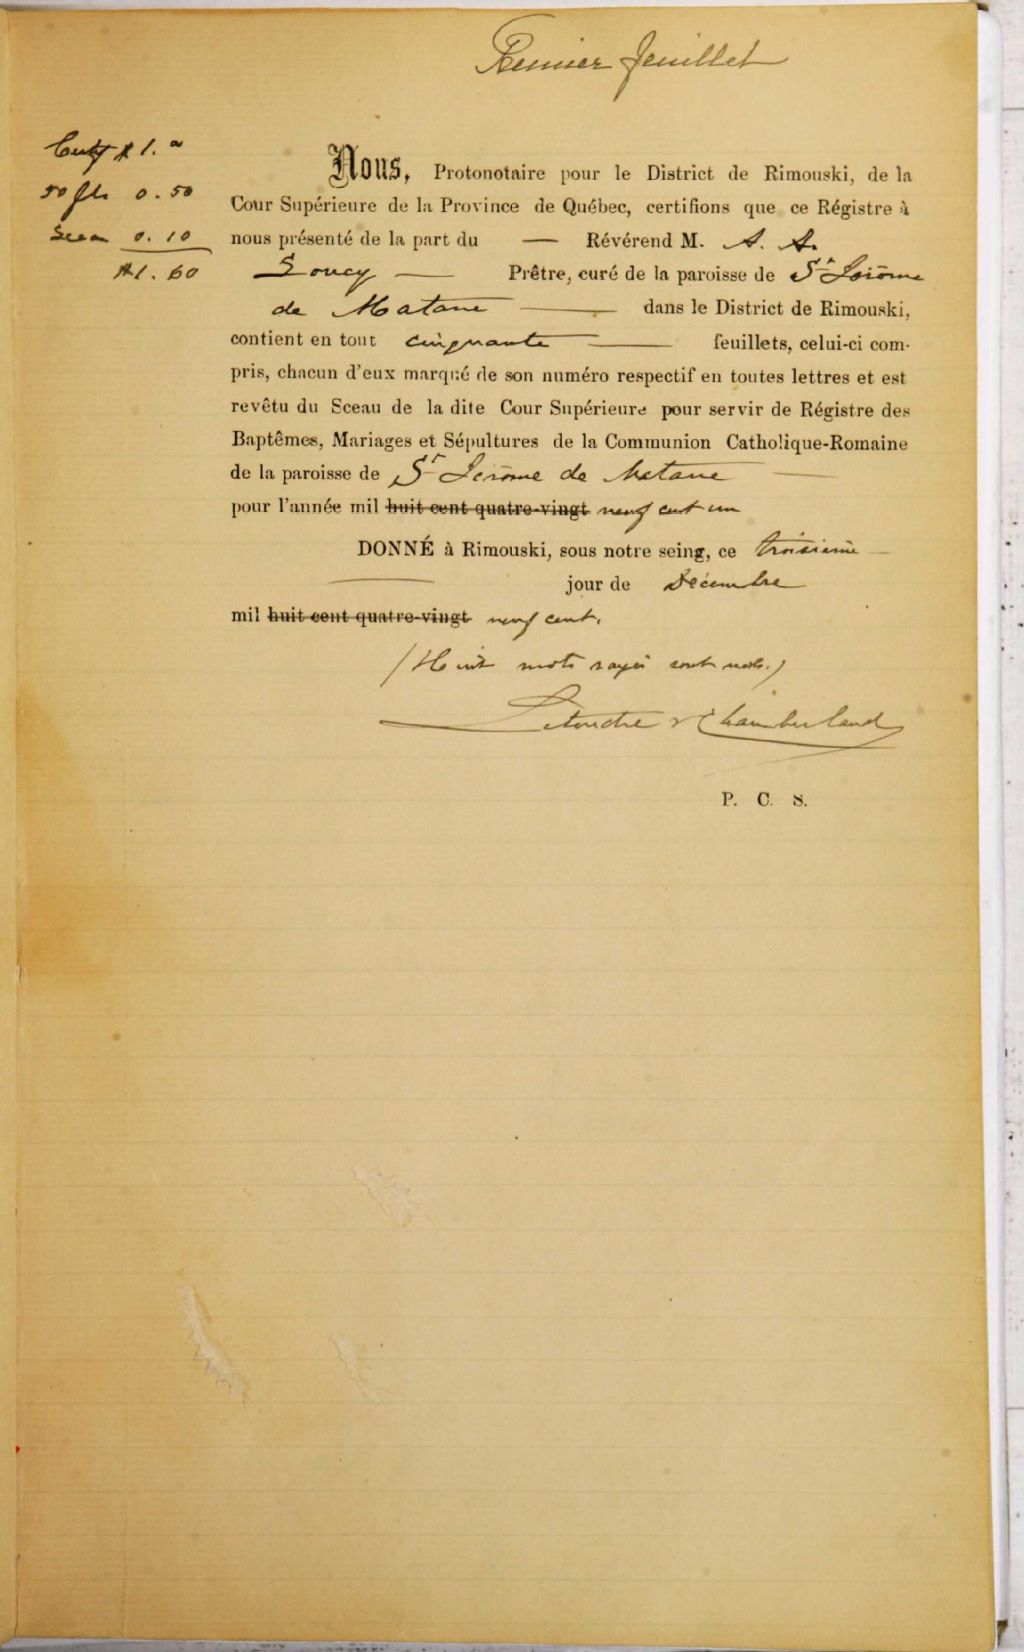 Premier feuillet
Certif $ 1. 00
50 flts 0.50
Sceau 0.10
$1.60
Nous, Protonotaire pour le District de Rimouski, de la
Cour Supérieure de la Province de Québec, certifions que ce Régistre à
nous présenté de la part du — Révérend M. A. A.
Soucy — Prêtre, curé de la paroisse de St Jérôme
de Matane — dans le District de Rimouski,
contient en tout cinquante — feuillets, celui-ci com-
pris, chacun d'eux marqué de son numéro respectif en toutes lettres et est
revêtu du Sceau de la dite Cour Supérieure pour servir de Régistre des
Baptêmes, Mariages et Sépultures de la Communion Catholique-Romaine
de la paroisse de St Jérôme de Matane —
pour l'année mil huit cent quatre-vingt neuf cent un
DONNÉ à Rimouski, sous notre seing, ce troisième —
— jour de Décembre
mil huit cent quatre-vingt neuf cent.
(Huit mots rayés sont nuls.)
Letendre & Chamberland
P. C. S.